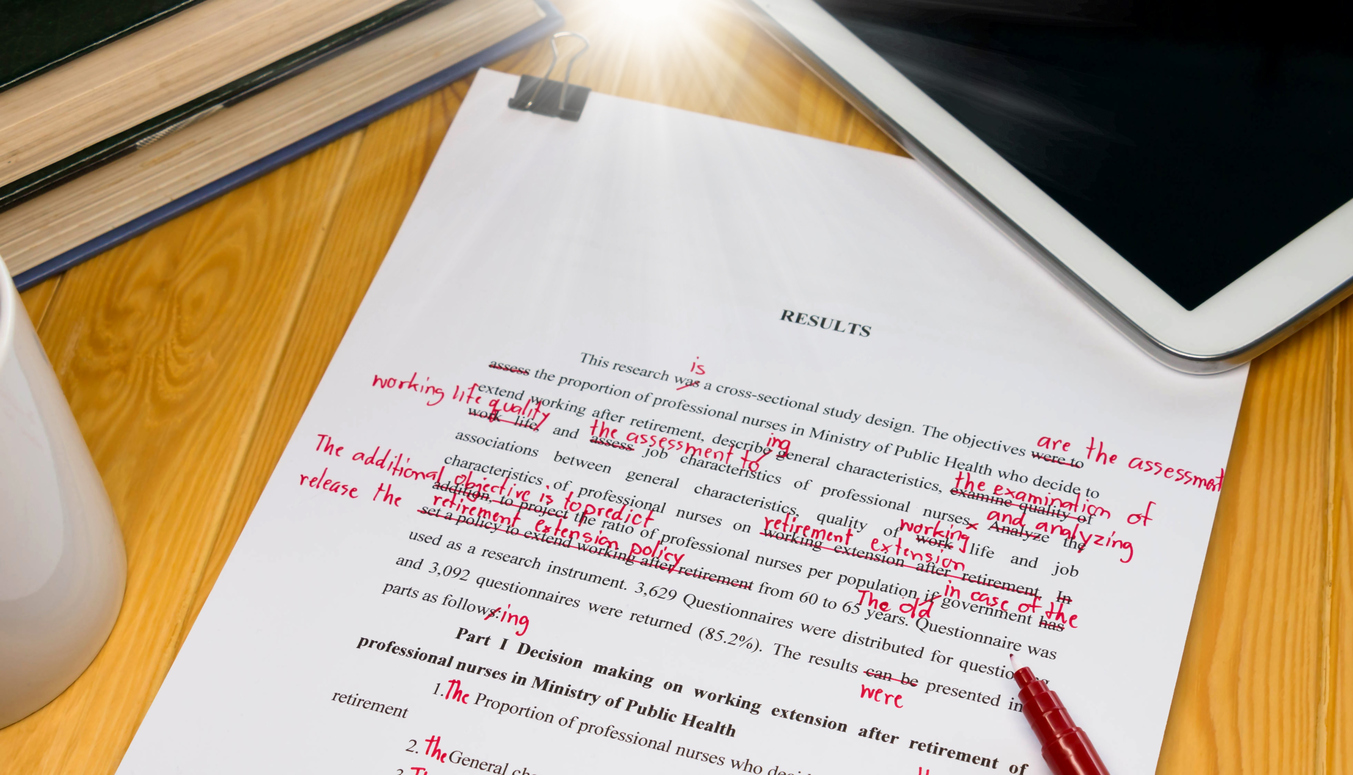 RESULTS
is
This research was a cross-sectional study design. The objectives were to
are the assessment
assess the proportion of professional nurses in Ministry of Public Health who decide to
working life quality
ing
extend working after retirement, describe general characteristics, examine quality of
the examination of
the assessment to
work life, and assess job characteristics of professional nurses. Analyze the
and analyzing
associations between general characteristics, quality of work life and job
working
The additional objective is to predict
retirement extension
characteristics of professional nurses on working extension after retirement. In
addition, to project the ratio of professional nurses per population if government has
in case of the
release the retirement extension policy
set a policy to extend working after retirement from 60 to 65 years. Questionnaire was
The old
used as a research instrument. 3,629 Questionnaires were distributed for
and 3,092 questionnaires were returned (85.2%). The results can be presented in
were
parts as follows:
ing
Part I Decision making on working extension after retirement of
professional nurses in Ministry of Public Health
1. The Proportion of professional nurses who
retirement
2. the General